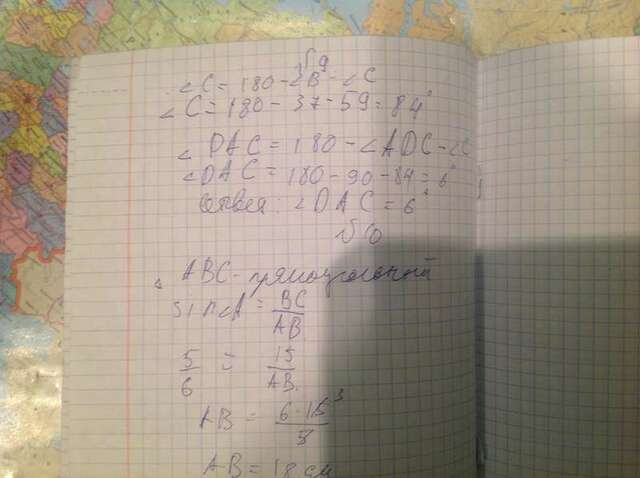 √9
∠C = 180 - ∠B - ∠C
∠C = 180 - 37 - 59 = 84°
∠DAC = 180 - ∠ADC - ∠C
∠DAC = 180 - 90 - 84 = 6°
Ответ: ∠DAC = 6°
ABC - прямоугольный
sin∠A = BC/AB
5/6 = 15/AB
AB = 6·15³/5
AB = 18 см